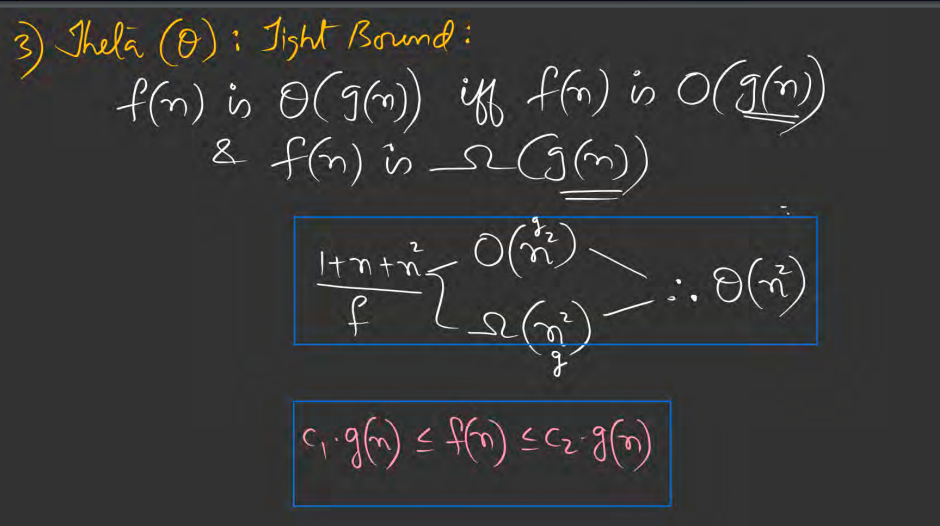 3) Theta (θ) : Tight Bound :
f(n) is θ(g(n)) iff f(n) is O(g(n))
& f(n) is Ω(g(n))
1+n+n² O(n²) g
f Ω(n²) ∴ θ(n²)
g
c₁·g(n) ≤ f(n) ≤ c₂·g(n)